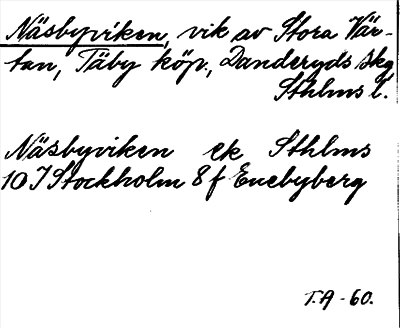 Näsbyviken, vik av Stora Vär-
tan, Täby köp., Danderyds skg
Sthlms l.
Näsbyviken ek Sthlms
10 I Stockholm 8 f Enebyberg
T.A - 60.